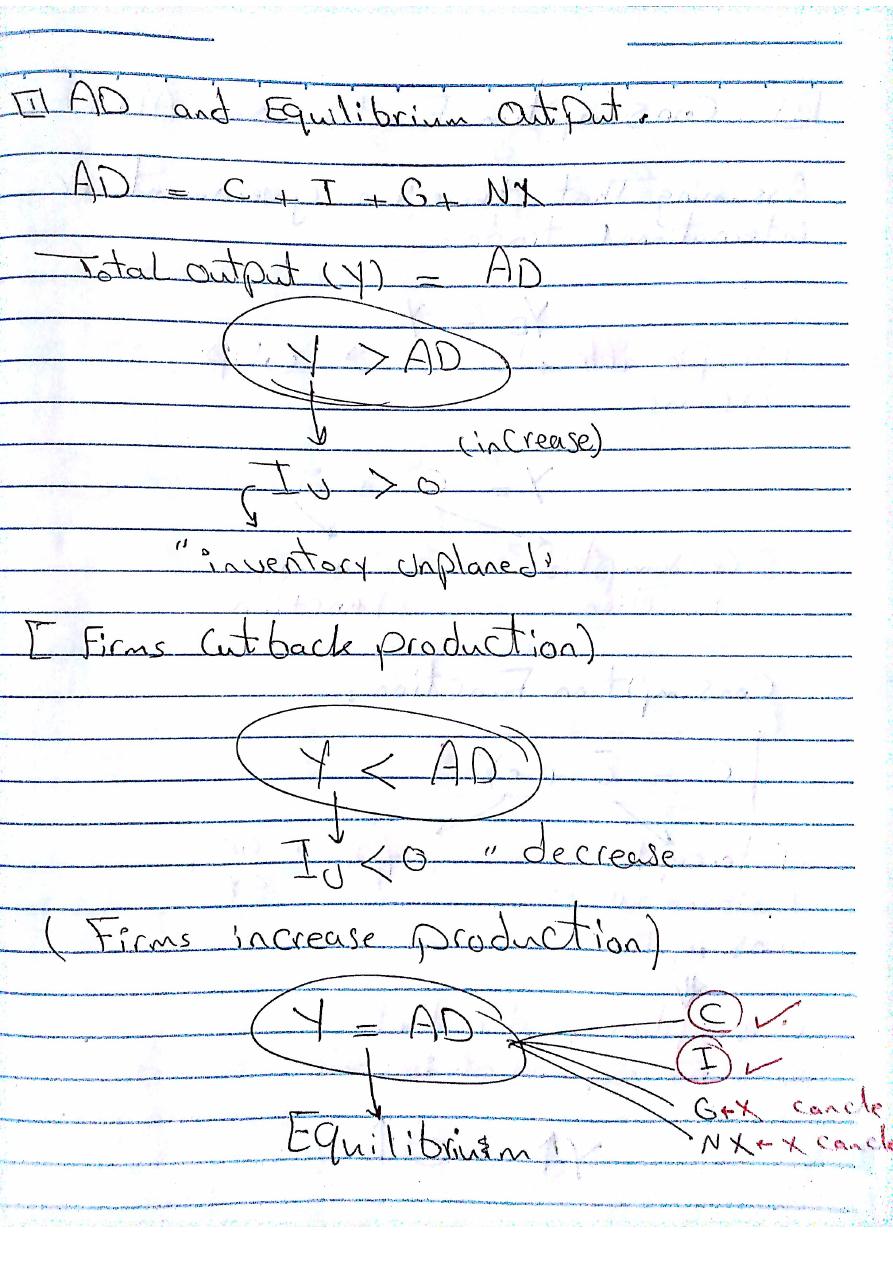 1 AD and Equilibrium Output.
AD = C + I + G + NX
Total output (Y) = AD
Y > AD
(increase)
Iu > 0
"inventory unplaned"
[ Firms Cutback production)
Y < AD
Iu < 0 " decrease
( Firms increase production)
Y = AD
C ✓
I ✓
G ← X cancle
NX ← X cancle
Equilibrium